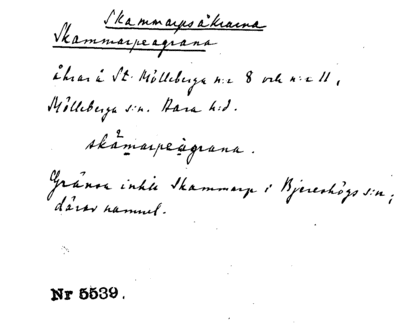 Skammarpsåkrarna
Skammarpeagrana
åkrar å St. Mölleberga n:r 8 och n:r 11,
Mölleberga s:n. Bara h:d.
skămarpeagrana.
Gränsa intill Skammarp i Bjereshögs s:n;
därav namnet.
Nr 5539.